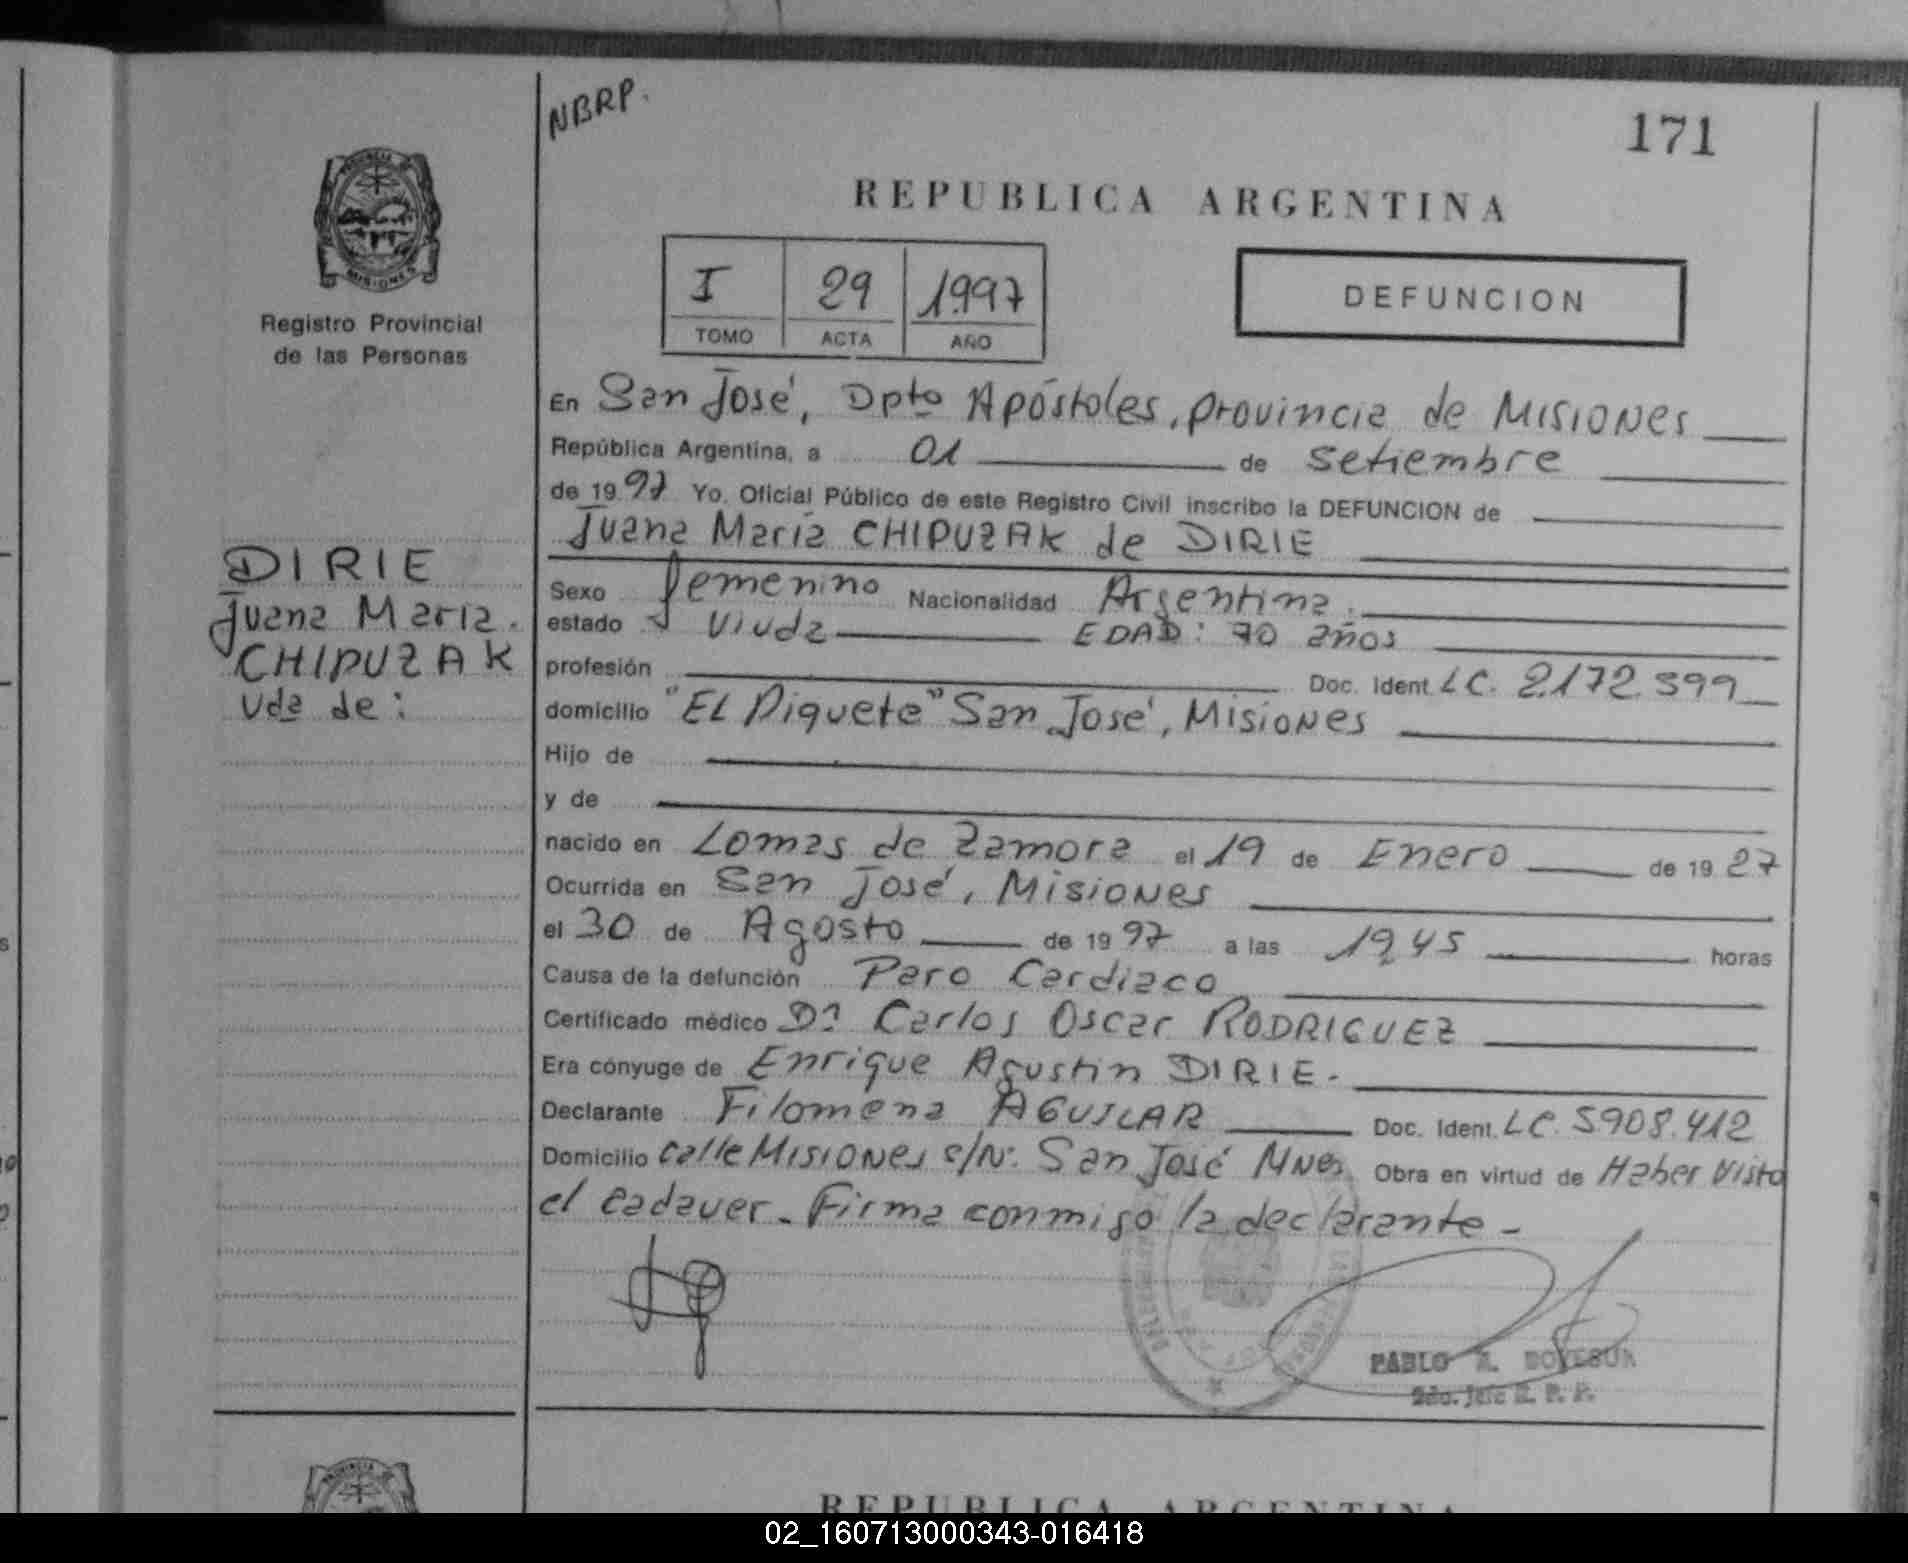 NBRP.
171
PROVINCIA DE
MISIONES
Registro Provincial
de las Personas
REPUBLICA ARGENTINA
I 29 1997
TOMO ACTA AÑO
DEFUNCION
En San José, Dpto Apóstoles, provincia de MISIONES
República Argentina, a 01 de setiembre
de 1997 Yo, Oficial Público de este Registro Civil inscribo la DEFUNCION de
Juana María CHIPUZAK de DIRIE
DIRIE
Juana María.
CHIPUZAK
Vda de:
Sexo femenino Nacionalidad Argentina.
estado Viuda EDAD: 70 años
profesión Doc. Ident. LC. 2.172.399
domicilio "EL Piquete" San José, Misiones
Hijo de
y de
nacido en Lomas de Zamora el 19 de Enero de 1927
Ocurrida en San José, Misiones
el 30 de Agosto de 1997 a las 19,45 horas
Causa de la defunción Paro Cardiaco
Certificado médico Dr Carlos Oscar RODRIGUEZ
Era cónyuge de Enrique Agustin DIRIE.
Declarante Filomena AGUILAR Doc. Ident. LC. 5908.412
Domicilio calle MISIONES s/Nº San José Mnes Obra en virtud de Haber Visto
el cadaver. Firma conmigo la declarante -
PABLO
2do. Jefe R. P. P.
REPUBLICA ARGENTINA
02_160713000343-016418